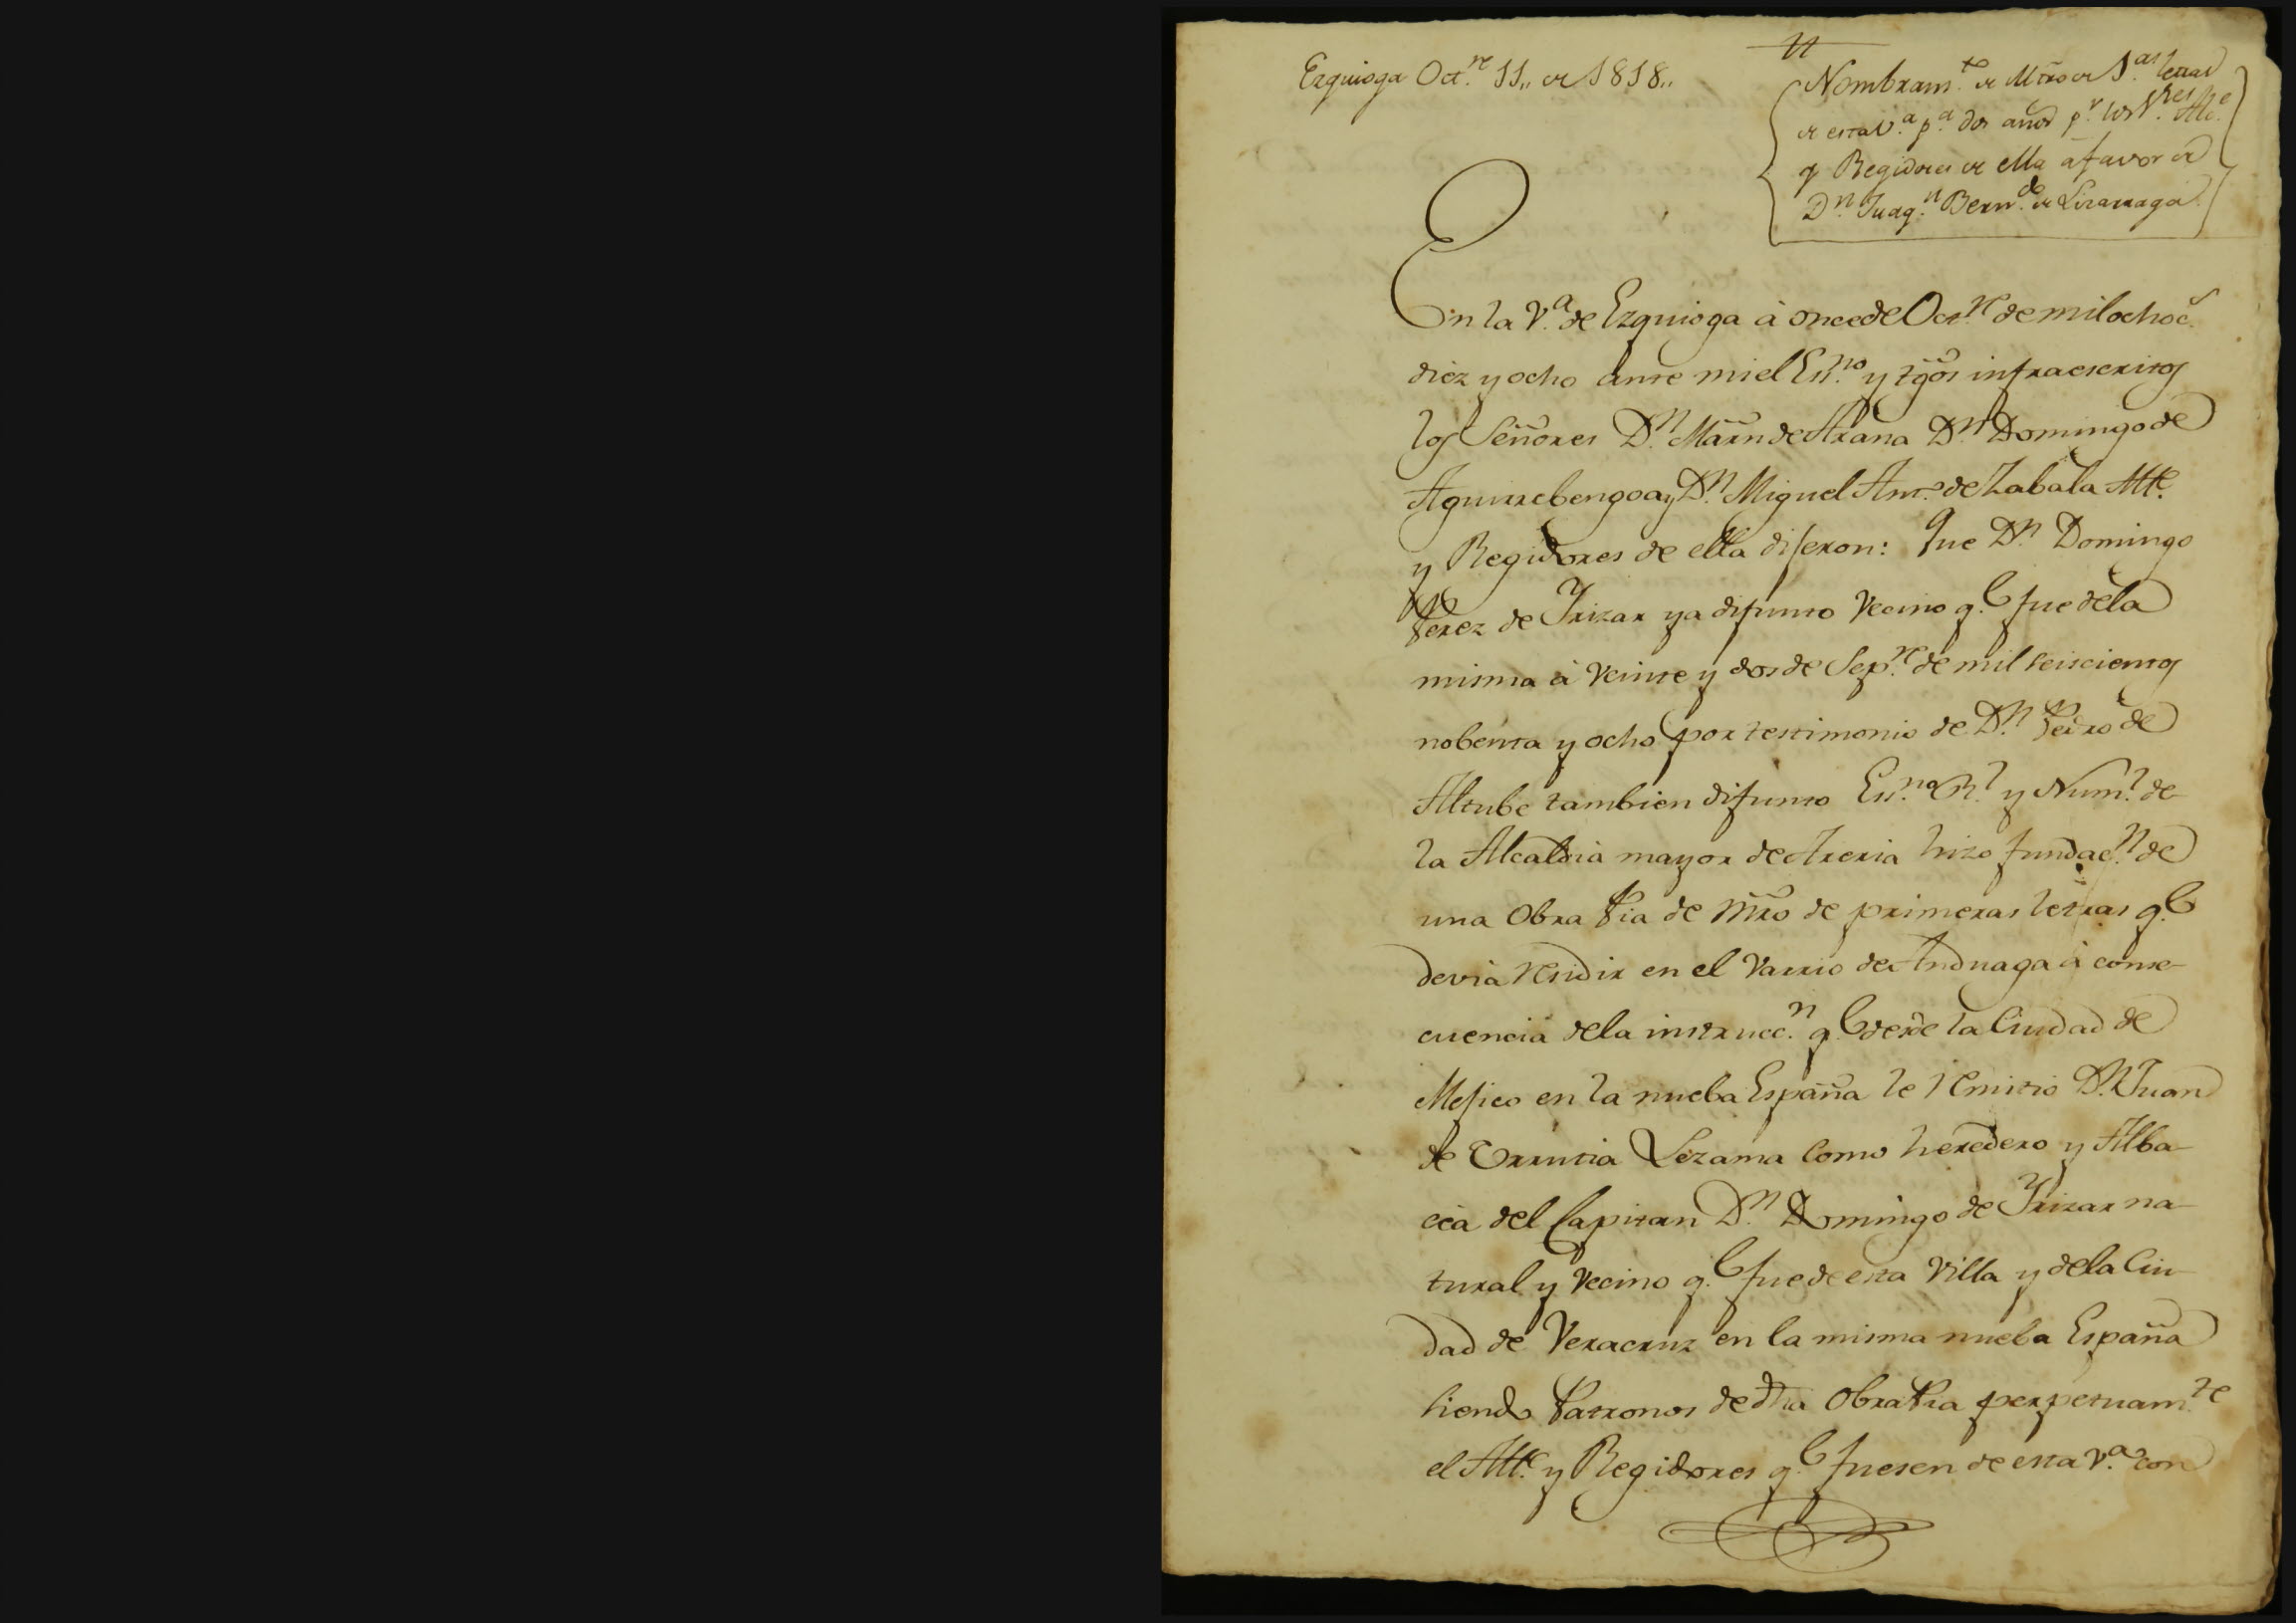 Ezquioga Oct.re 11,, de 1818,,
Nombram.to de Mtro de 1.as letras
de esta V.a p.a dos años p.r los S.res Alc.e
y Regidores de ella á favor de
D.n Juaq.n Bern.do de Lizarraga
En la V.a de Ezquioga à once de Oct.re de mil ochoc.s
diez y ocho ante mi el Es.no y tgõs infraescritos
los Señores D.n Mãrn de Arana D.n Domingo de
Aguirrebengoa y D.n Miguel Ant.o de Zabala Alc.e
y Regidores de ella diferon: Que D.n Domingo
Perez de Yrizar ya difunto vecino q.e fue de la
misma à veinte y dos de Sep.re de mil seiscientos
nobenta y ocho por testimonio de D.n Pedro de
Altube tambien difunto Es.no R.l y Num.l de
la Alcaldia mayor de Areria hizo fundac.n de
una Obra Pia de Mr̃o de primeras letras q.e
devia residir en el varrio de Anduaga à conse-
cuencia dela instrucc.n q.e desde la Ciudad de
Mefico en la nueba España le remitio D.n Juan
de Urrutia Lezama como heredero y Alba-
cea del Capitan D.n Domingo de Yrizar na-
tural y vecino q.e fue de esta Villa y dela Ciu-
dad de Veracruz en la misma nueba España
siendo Patronos de dha Obra Pia perpetuam.te
el Alc.e y Regidores q.e fuesen de esta V.a con